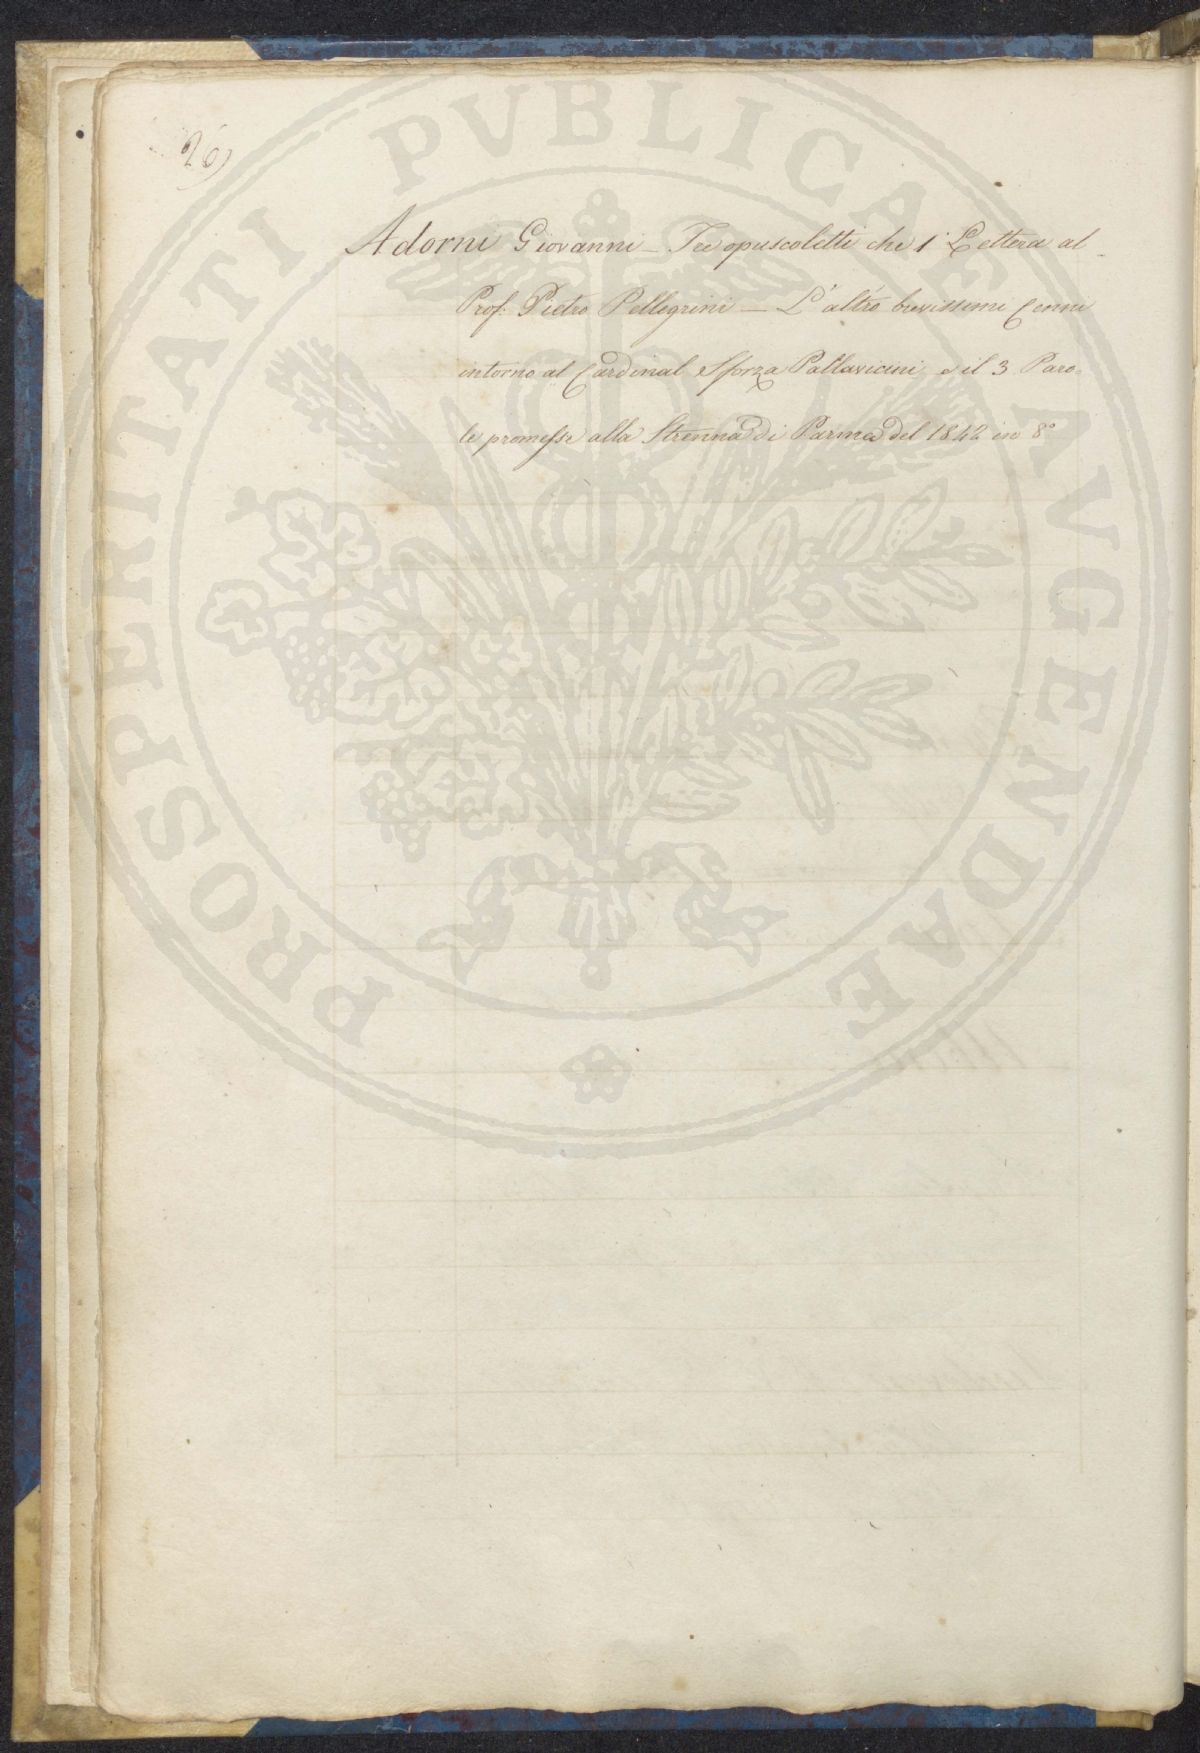 26)
Adorni Giovanni – Tre opuscoletti che 1° Lettera al
Prof. Pietro Pellegrini — L'altro brevissimi Cenni
intorno al Cardinal Sforza Pallavicini, e il 3 Paro-
le promesse alla Strenna di Parma del 1842 in 8°
PROSPERITATI PVBLICAE AVGENDAE